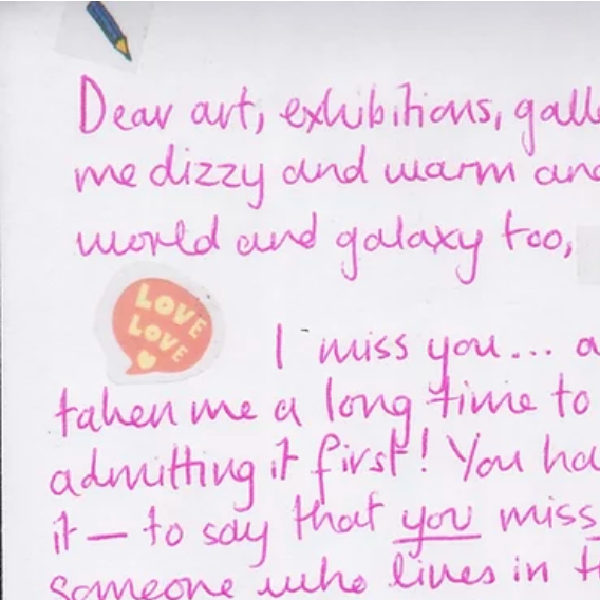 Dear art, exhibitions, galle
me dizzy and warm and
world and galaxy too,
LOVE
LOVE
I miss you... a
taken me a long time to
admitting it first! You ha
it — to say that you miss
someone who lives in t